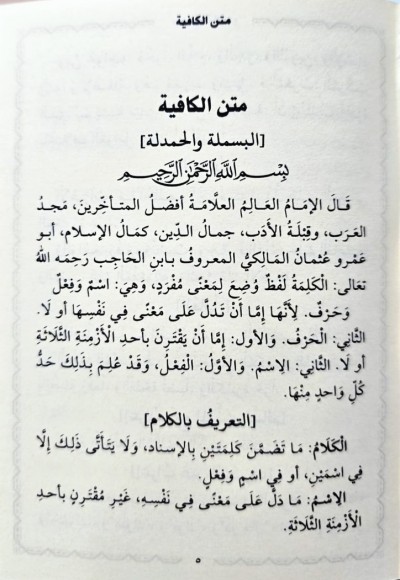 متن الكافية
متن الكافية
[البسملة والحمدلة]
بِسْمِ اللَّهِ الرَّحْمَٰنِ الرَّحِيمِ
قَالَ الإمَامُ العَالِمُ العلاَّمَةُ أفضَلُ المتأخِّرينَ، مَجدُ
العَرَبِ، وقِبْلَةُ الأدَبِ، جمالُ الدِّينِ، كمَالُ الإسلامِ، أبو
عَمْرٍو عُثمَانُ المَالِكِيُّ المعروفُ بابنِ الحَاجِبِ رَحِمَه اللهُ
تعالى: الْكَلِمَةُ لَفْظٌ وُضِعَ لِمَعْنًى مُفْرَدٍ، وَهِيَ: اسْمٌ وَفِعْلٌ
وَحَرْفٌ. لِأَنَّهَا إِمَّا أَنْ تَدُلَّ عَلَى مَعْنًى فِي نَفْسِهَا أَو لَا.
الثَّانِي: الْحَرْفُ. وَالأول: إِمَّا أَنْ يَقْتَرِنَ بأحدِ الأَزْمِنَةِ الثَّلَاثَةِ
أو لَا. الثَّانِي: الِاسْمُ. وَالأَوَّلُ: الْفِعْلُ، وَقَدْ عُلِمَ بِذَلِكَ حَدُّ
كُلِّ وَاحِدٍ مِنْهَا.
[التعريفُ بالكلام]
الْكَلَامُ: مَا تَضَمَّنَ كَلِمَتَيْنِ بِالإسنادِ، وَلَا يَتَأَتَّى ذَلِكَ إِلَّا
فِي اسْمَيْنِ، أو فِي اسْمٍ وَفِعْلٍ.
الِاسْمُ: مَا دَلَّ عَلَى مَعْنًى فِي نَفْسِهِ، غَيْرِ مُقْتَرِنٍ بأحدِ
الْأَزْمِنَةِ الثَّلَاثَةِ.
٥